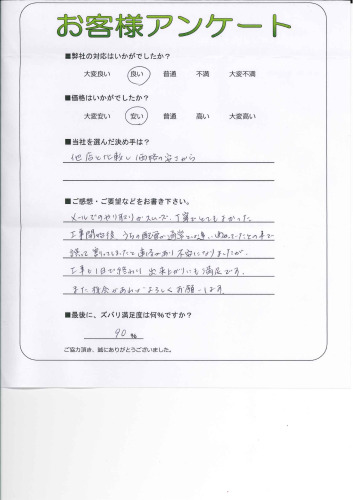 お客様アンケート
■弊社の対応はいかがでしたか？
大変良い 良い 普通 不満 大変不満
■価格はいかがでしたか？
大変安い 安い 普通 高い 大変高い
■当社を選んだ決め手は？
他店と比較し価格の安さから
■ご感想・ご要望などをお書き下さい。
メールでのやり取りがスムーズ、丁寧でとてもよかった
工事開始後、うちの配管が通常と違い
誤って割ってしまったと連絡があり不安になりましたが、
工事も1日で終わり 出来上がりにも満足です。
また機会があればよろしくお願いします
■最後に、ズバリ満足度は何%ですか？
90 %
ご協力頂き、誠にありがとうございました。